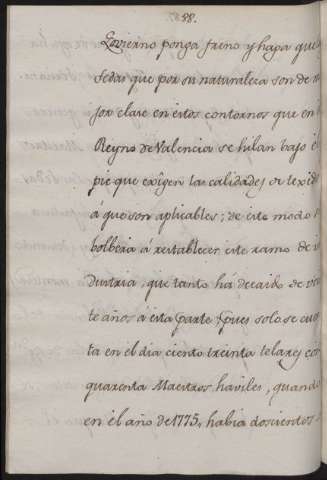 88.
Govierno ponga freno y haga que
sedas que por su naturaleza son de
jor clase en estos contornos que en
Reyno de Valencia se hilan bajo
pie que exîgen las calidades de texid
á que son aplicables; de este modo
bolberia á restablecer este ramo de
dustria, que tanto há decaido de
te años á esta parte, pues solo se cue
ta en el dia ciento treinta telares
quarenta Maestros haviles, quando
en el año de 1775, habia doscientos